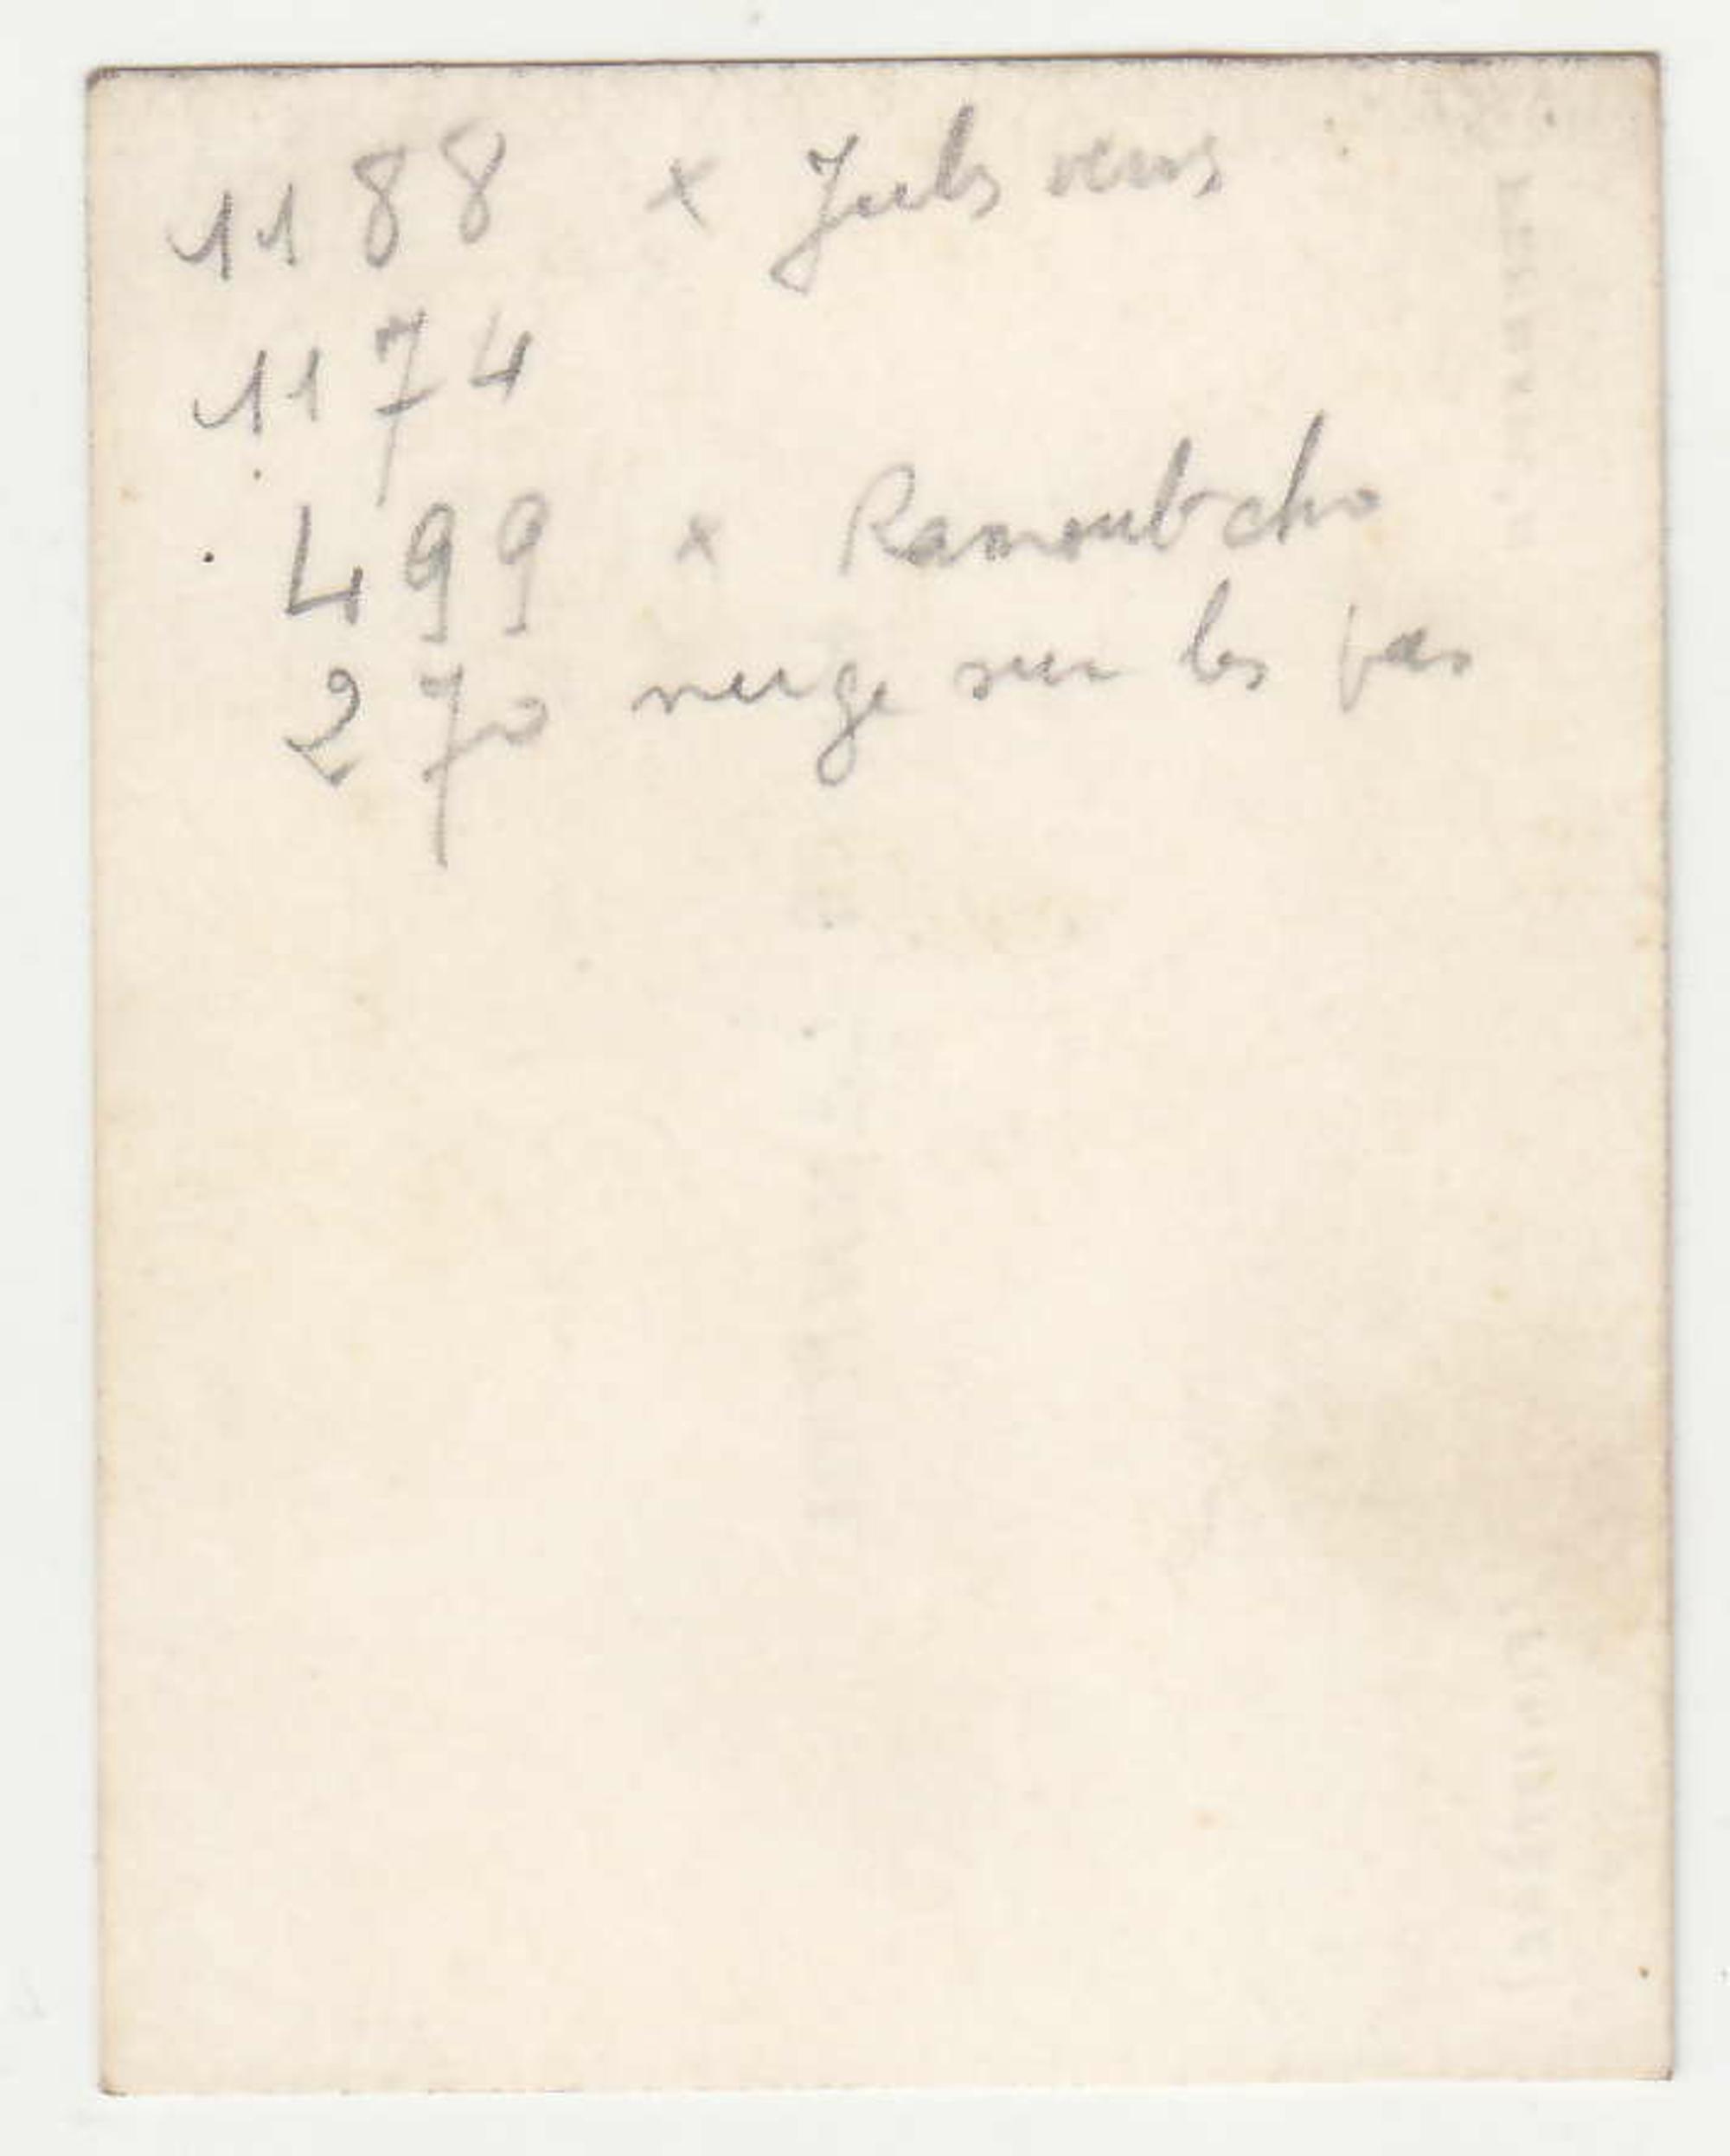 1188 x Jules verns
1174
499 x Ramountcho
270 neige sur les pas